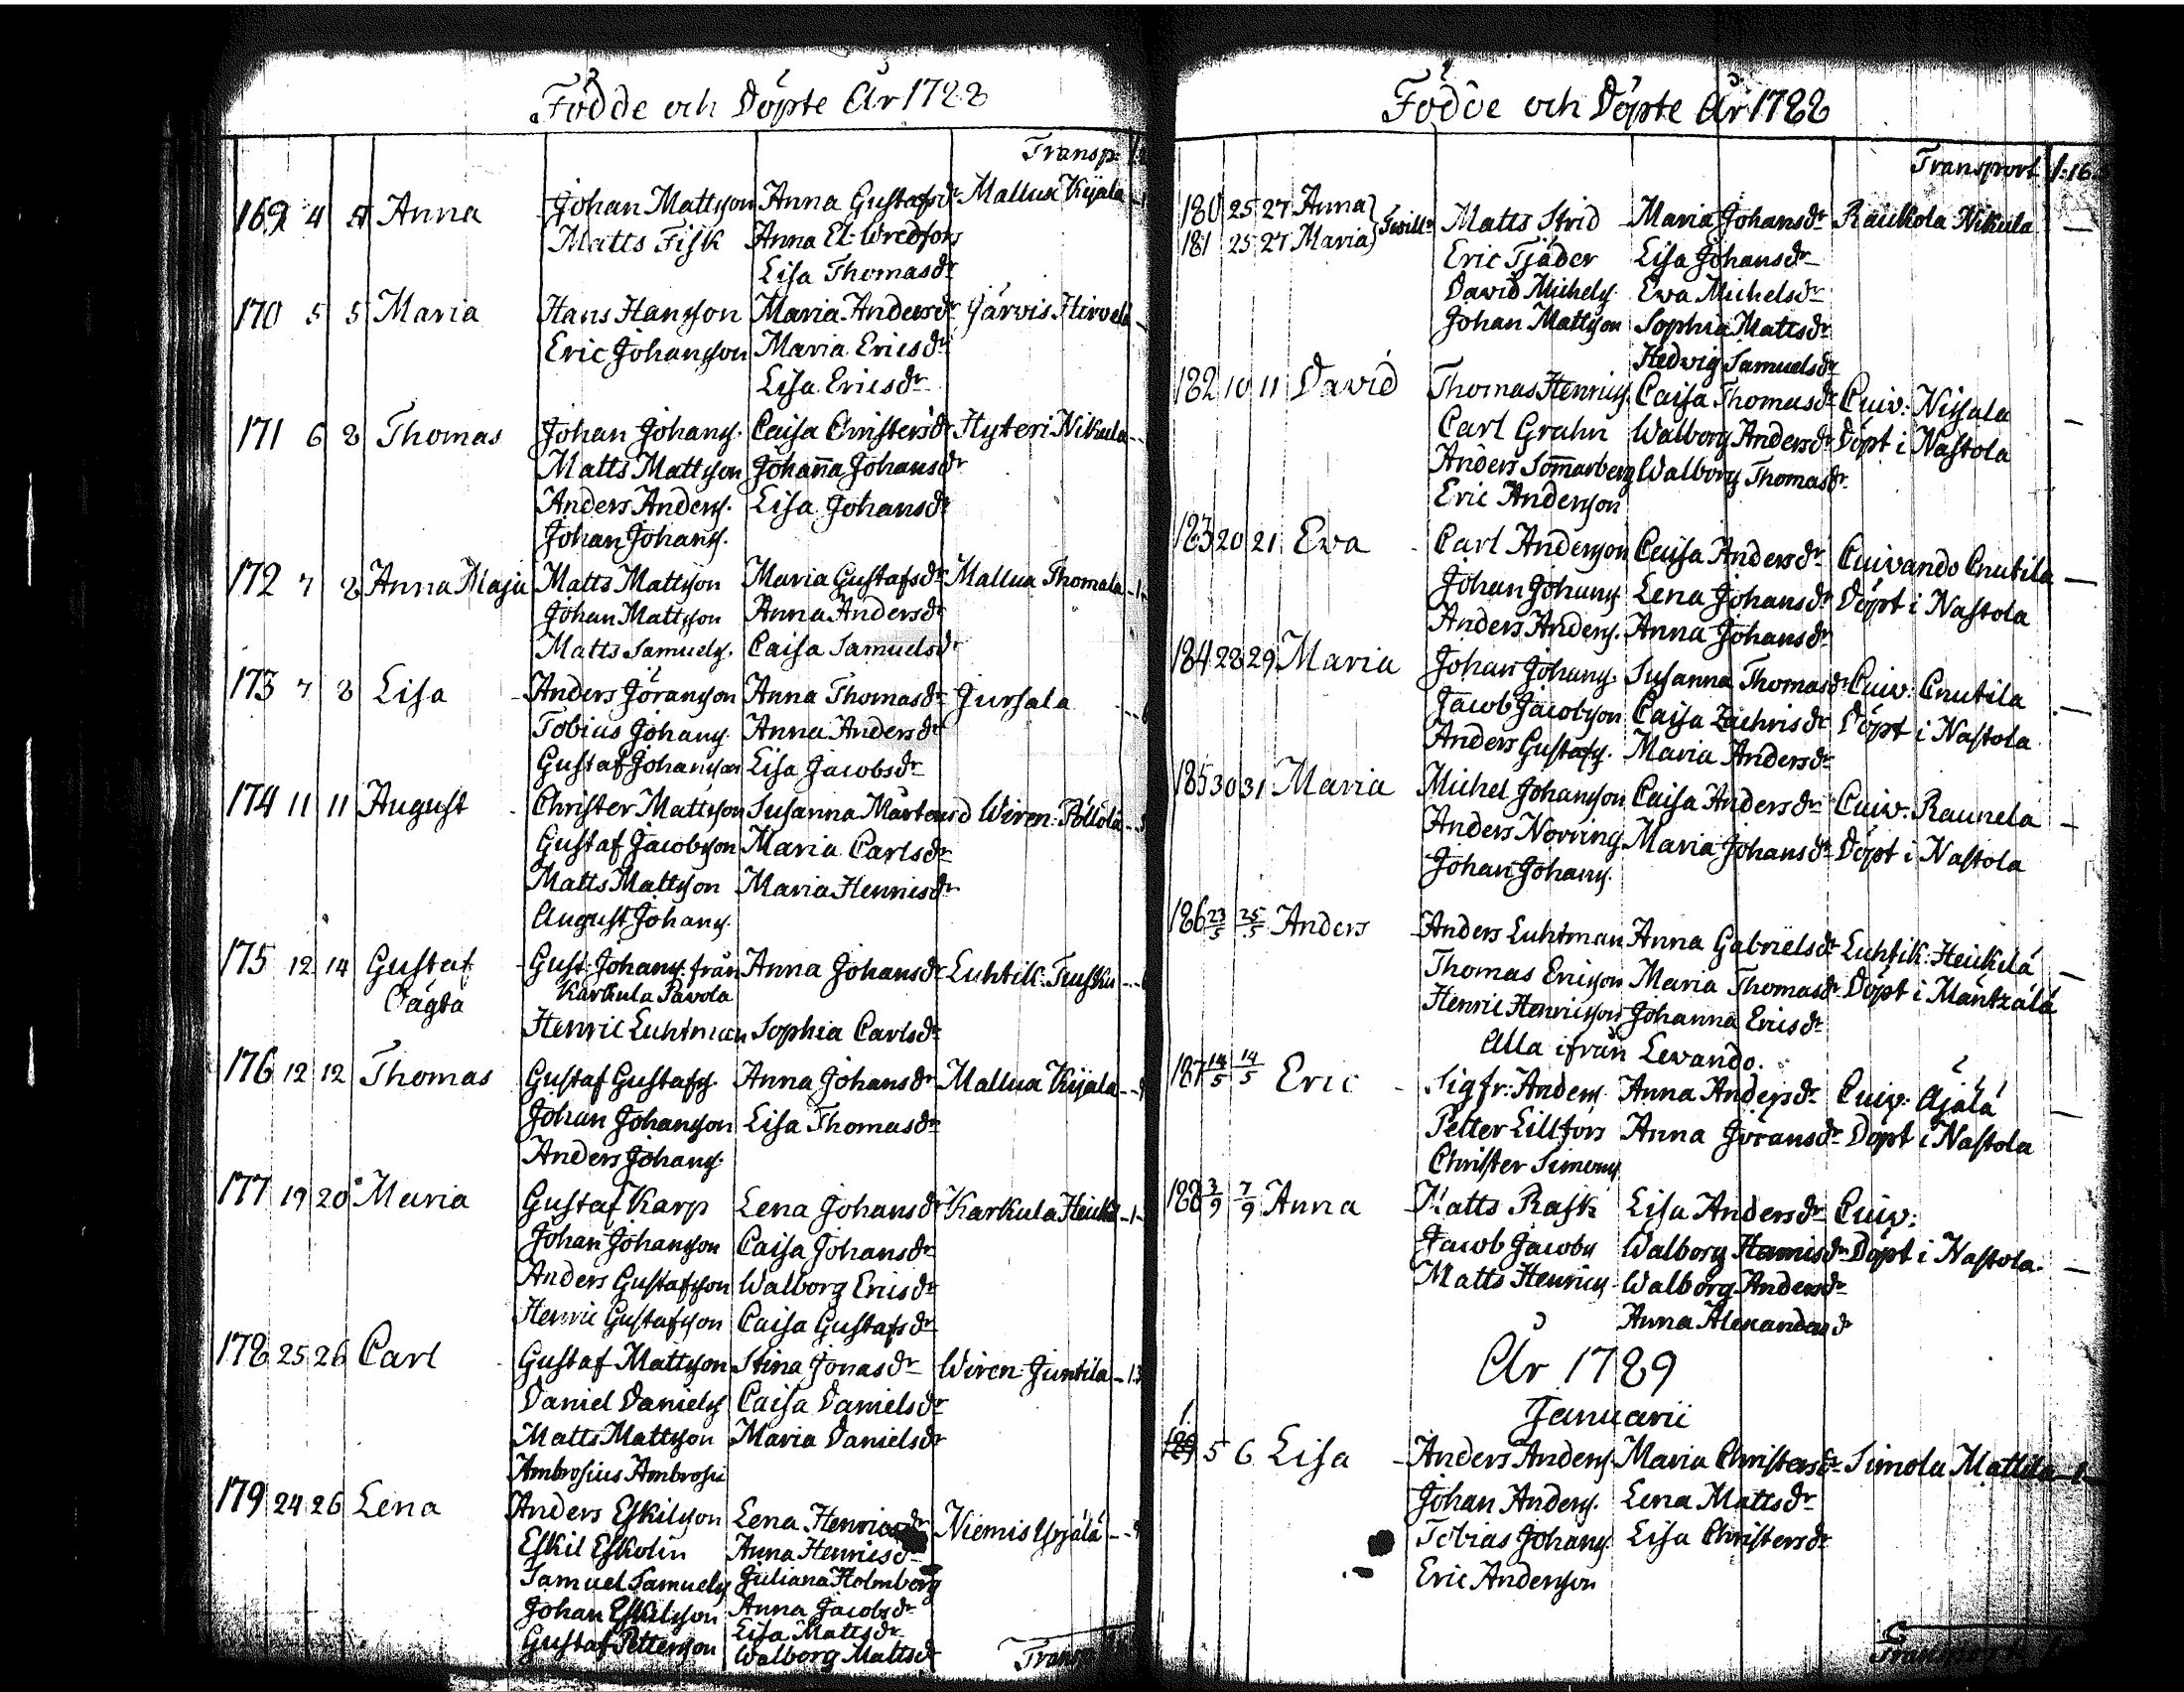 Födde och Döpte År 1788
Transp:
169 4 5 Anna Johan Mattsson Anna Gustafsdr Mallua Kijala
Matts Fisk Anna El: Wredfors
Lisa Thomasdr
170 5 5 Maria Hans Hansson Maria Andersdr Järvis Hirvelä
Eric Johansson Maria Ericsdr
Lisa Ericsdr
171 6 8 Thomas Johan Johanss. Caisa Christersdr Hyteri Nikula
Matts Mattsson Johanna Johansdr
Anders Anderss. Lisa Johansdr
Johan Johanss.
172 7 8 Anna Maja Matts Mattsson Maria Gustafsdr Mallua Thomala
Johan Mattsson Anna Andersdr
Matts Samuelss. Caisa Samuelsdr
173 7 8 Lisa Anders Göransson Anna Thomasdr Jursala
Tobias Johanss. Anna Andersdr
Gustaf Johansson Lisa Jacobsdr
174 11 11 August Christer Mattsson Susanna Mårtensd Wiren: Pållola
Gustaf Jacobsson Maria Carlsdr
Matts Mattsson Maria Henricsdr
August Johanss.
175 12 14 Gustaf Gust: Johanss: från Anna Johansdr Luhtik: Tuusku
Oägta Karkula Pavola
Henric Luhtman Sophia Carlsdr
176 12 12 Thomas Gustaf Gustafss. Anna Johansdr Mallua Kijala
Johan Johansson Lisa Thomasdr
Anders Johanss.
177 19 20 Maria Gustaf Karp Lena Johansdr Karkula Heikilä
Johan Johansson Caisa Johansdr
Anders Gustafsson Walborg Ericsdr
Henric Gustafsson Caisa Gustafsdr
178 25 26 Carl Gustaf Mattsson Stina Jonasdr Wiren: Juntila
Daniel Danielss Caisa Danielsdr
Matts Mattsson Maria Danielsdr
Ambrosius Ambrosii
179 24 26 Lena Anders Eskilsson Lena Henricsdr Niemis Yrjälä
Eskil Eskolin Anna Henricsdr
Samuel Samuelss Juliana Holmberg
Johan Eskilsson Anna Jacobsdr
Gustaf Pettersson Lisa Mattsdr
Walborg Mattsdr
Transp
Födde och Döpte År 1788
Transport 1:16
180 25 27 Anna
181 25 27 Maria Tvill: Matts Strid Maria Johansdr Raukola Nikula
Eric Tjäder Lisa Johansdr
David Michelss. Ewa Michelsdr
Johan Mattsson Sophia Mattsdr
Hedvig Samuelsdr
182 10 11 David Thomas Henricss. Caisa Thomasdr Cuiv: Nissala
Carl Grahn Walborg Andersdr Döpt i Nastola
Anders Sommarberg Walborg Thomasdr
Eric Andersson
183 20 21 Eva Carl Andersson Caisa Andersdr Cuivando Cnutila
Johan Johanss. Lena Johansdr Döpt i Nastola
Anders Anderss. Anna Johansdr
184 28 29 Maria Johan Johanss. Susanna Thomasdr Cuiv: Cnutila
Jacob Jacobsson Caisa Zachrisdr Döpt i Nastola
Anders Gustafss. Maria Andersdr
185 30 31 Maria Michel Johansson Caisa Andersdr Cuiv: Raunela
Anders Norring Maria Johansdr Döpt i Nastola
Johan Johanss.
186 23/5 25/5 Anders Anders Luhtman Anna Gabrielsdr Luhtik: Heikilä
Thomas Ericsson Maria Thomasdr Döpt i Mäntzälä
Henric Henricsson Johanna Ericsdr
Alla ifrån Levando.
187 14/5 14/5 Eric Sigfr: Anderss. Anna Andersdr Cuiv: Äjälä
Petter Lillfors Anna Göransdr Döpt i Nastola
Christer Simonss.
188 3/9 7/9 Anna Matts Rask Lisa Andersdr Cuiv:
Jacob Jacobss Walborg Henricsdr Döpt i Nastola
Matts Henricss. Walborg Andersdr
Anna Alexandersd
År 1789
Januarii
1.
189 5 6 Lisa Anders Anderss. Maria Christersdr Simola Mattila
Johan Anderss. Lena Mattsdr
Tobias Johanss. Lisa Christersdr
Eric Andersson
Transport